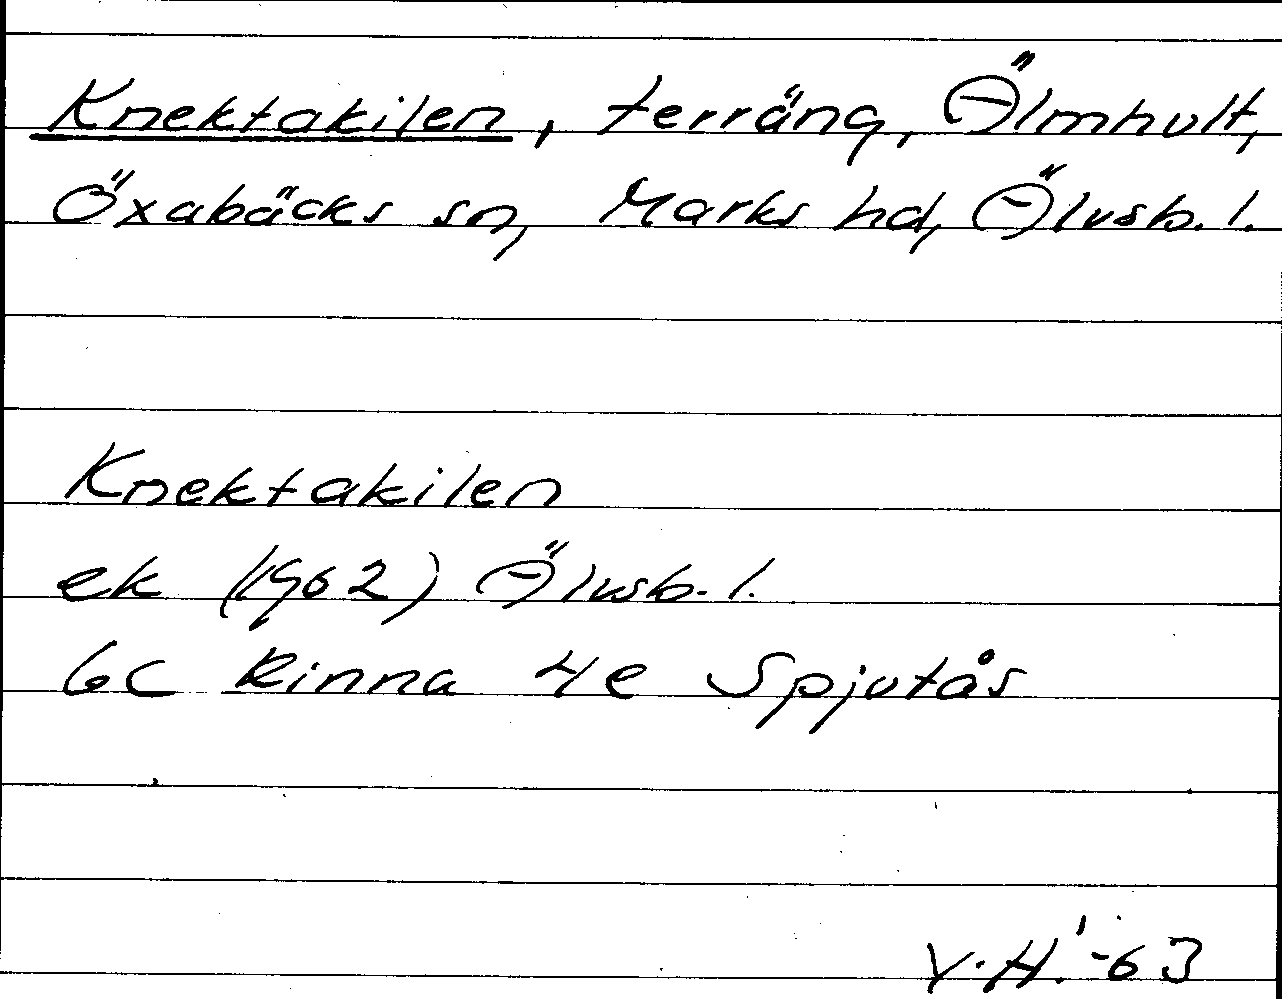 Knektakilen, terräng, Älmhult,
Öxabäcks sn, Marks hd, Älvsb. l.
Knektakilen
ek (1962) Älvsb. l.
6c Kinna 4e Spjutås
V.H. -63